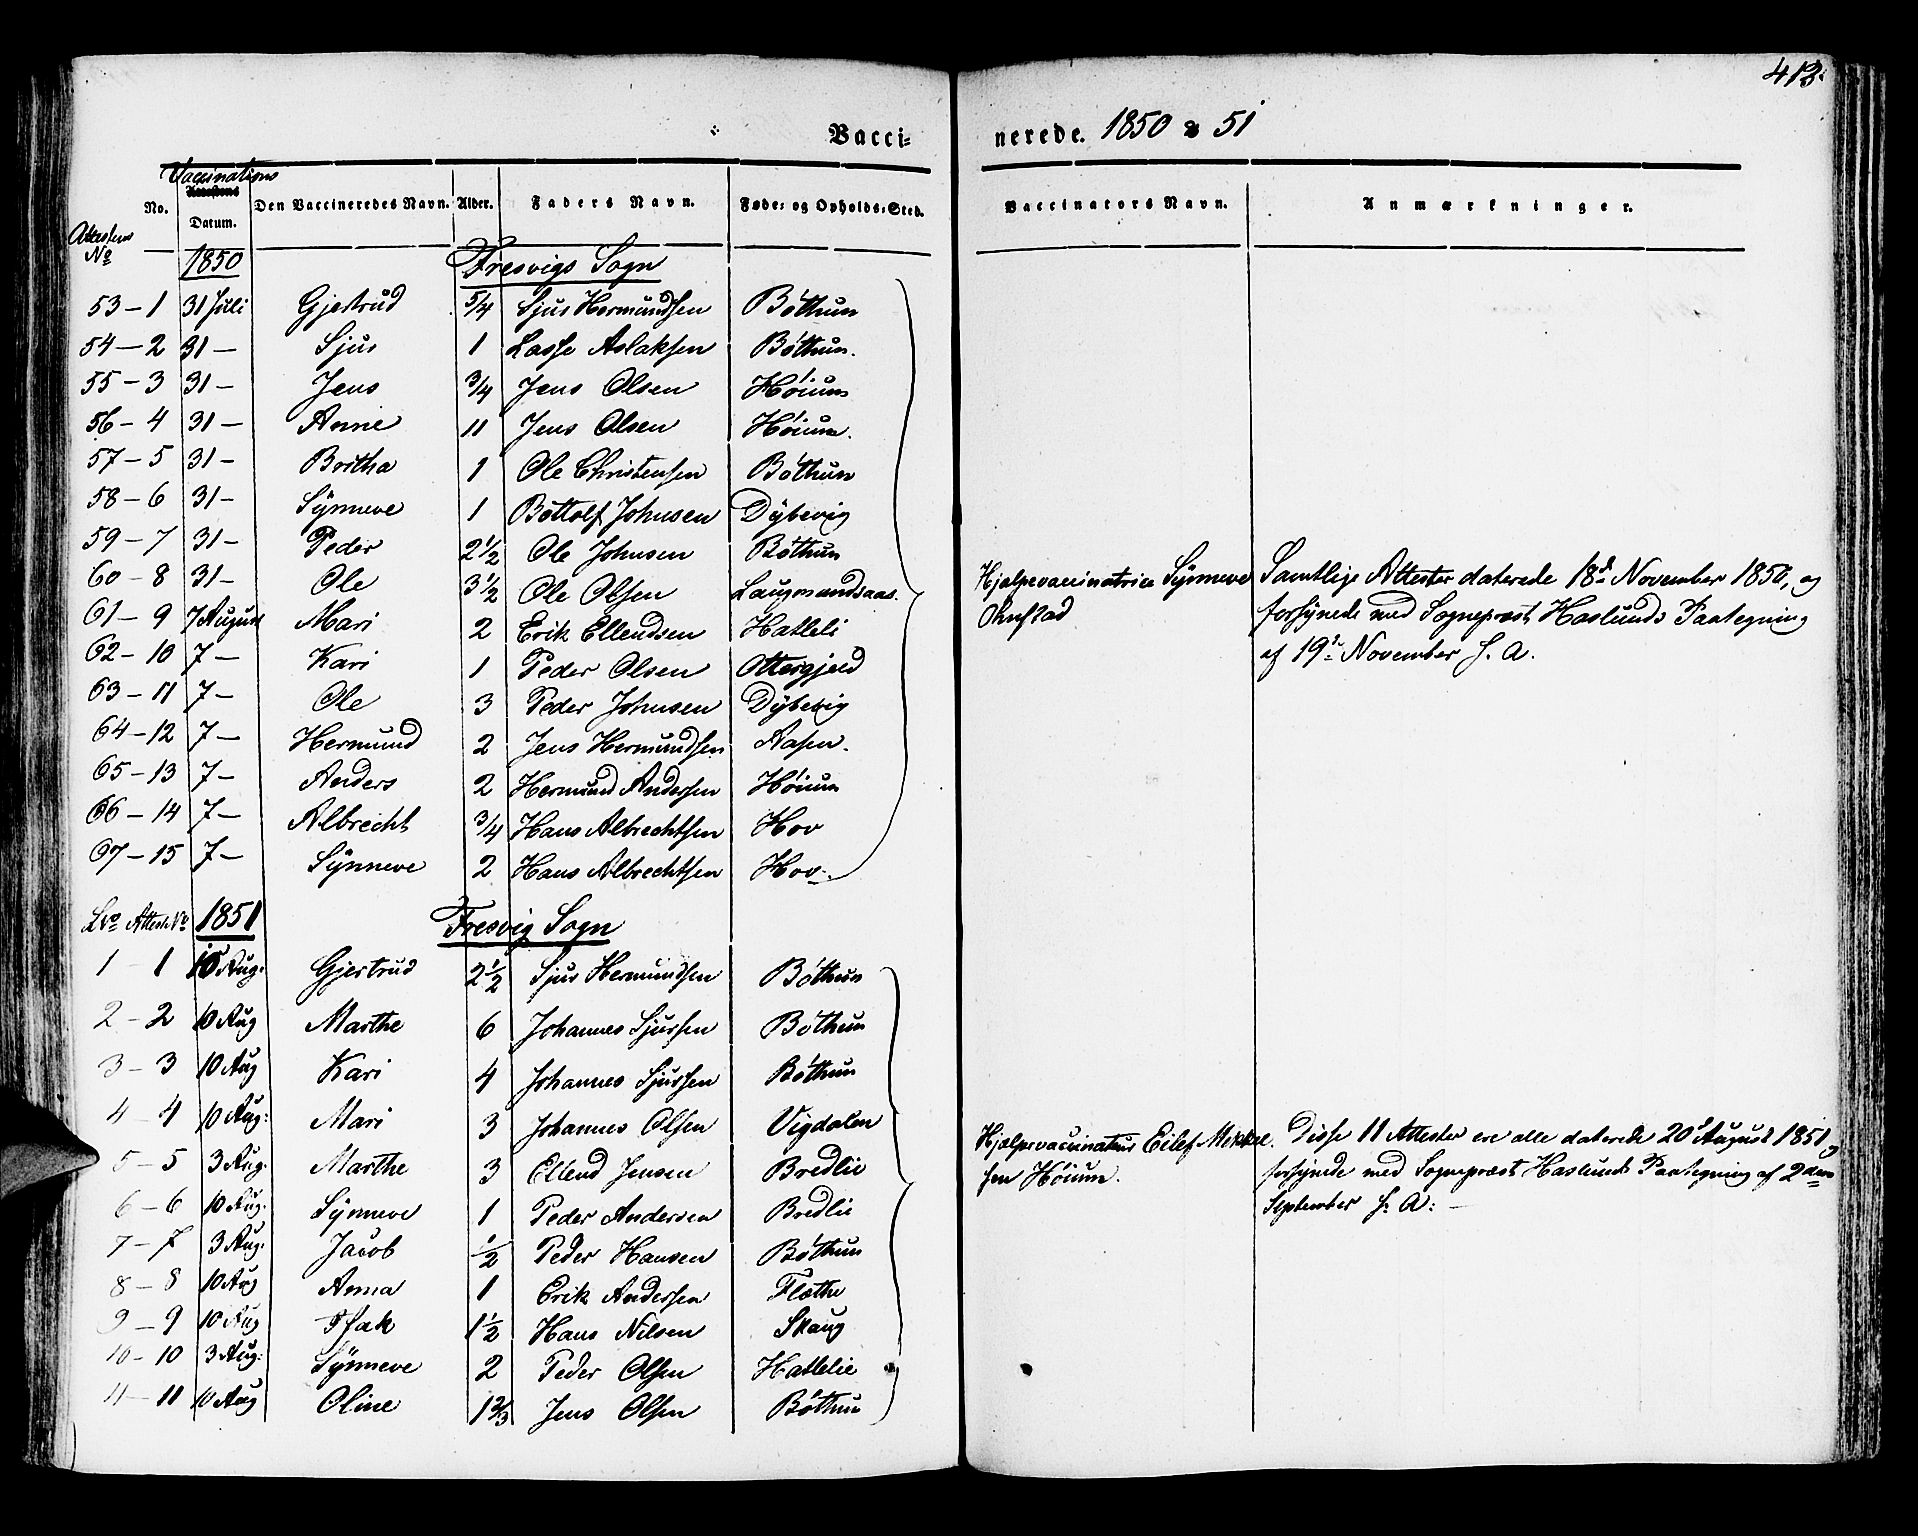 413.
Vacci= nerede. 1850 & 51
Vaccinations
No. Datum. Den Vaccineredes Navn. Alder. Faders Navn. Føde= og Opholds=Sted. Vaccinators Navn. Anmærkninger.
Attestens
No
1850 Fresvigs Sogn
53 - 1 31 Juli Gjertrud 5/4 Sjus Hermundsen Bøthun
54 - 2 31 - Sjus 1 Lasse Aslaksen Bøthun.
55 - 3 31 - Jens 3/4 Jens Olsen Høium
56 - 4 31 - Anne 11 Jens Olsen Høium.
57 - 5 31 - Britha 1 Ole Christensen Bøthun
58 - 6 31 - Synneve 1 Bottolf Johnsen Dybevig
59 - 7 31 - Peder 2 1/2 Ole Johnsen Bøthun
60 - 8 31 - Ole 3 1/2 Ole Olsen Laugmandsaas.
61 - 9 7 August Mari 2 Erik Ellendsen Hatleli
62 - 10 7 - Kari 1 Peder Olsen Ottergjeld
63 - 11 7 - Ole 3 Peder Johnsen Dybevig
64 - 12 7 - Hermund 2 Jens Hermundsen Aasen.
65 - 13 7 - Anders 2 Hermund Andersen Høium
66 - 14 7 - Albrecht 3/4 Hans Albrechtsen Hov
67 - 15 7 - Synneve 2 Hans Albrechtsen Hov.
Hjælpevaccinatrice Synneve
Ohnstad
Samtlige Attester daterede 18d November 1850, og
forsynede med Sognepræst Haslunds Paategning
af 19d November s. A.
Lno Attest. No 1851 Fresvig Sogn
1 - 1 10 Aug: Gjertrud 2 1/2 Sjus Hermundsen Bøthun
2 - 2 10 Aug Marthe 6 Johannes Sjursen Bøthun
3 - 3 10 Aug Kari 4 Johannes Sjursen Bøthun
4 - 4 10 Aug: Mari 3 Johannes Olsen Vigdalen
5 - 5 3 Aug. Marthe 3 Ellend Jensen Bredlie
6 - 6 10 Aug. Synneve 1 Peder Andersen Bredlie
7 - 7 3 Aug. Jacob 1/2 Peder Hansen Bøthun
8 - 8 10 Aug Anna 1 Erik Andersen Fløthe
9 - 9 10 Aug Isak 1 1/2 Hans Nilsen Skaug
10 - 10 3 Aug: Synneve 2 Peder Olsen Hatlelie
11 - 11 10 Aug Oline 1 2/3 Jens Olsen Bøthun
Hjælpevaccinateur Eilef Mikkel
sen Høium.
Disse 11 Attester ere alle daterede 20d August 1851, og
forsynede med Sognepræst Haslunds Paategning af 2den
September s. A: -